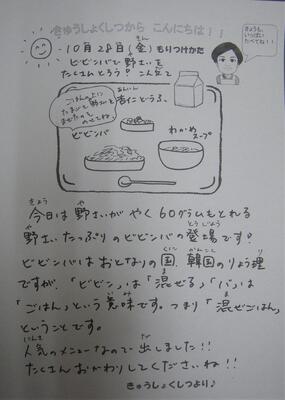 きゅうしょくしつから こんにちは！！
きょうも、
いっぱい
たべてね！！
10月28日(金)もりつけかた
ビビンバで野さいを
たくさんとろう？こんだて
ごはんの上に
たまごと野さいを
まぜたものを
のせてね。
杏仁とうふ
ビビンバ
わかめ
スープ
今日は野さいがやく60グラムもとれる
野さいたっぷりのビビンバの登場です！
ビビンバはおとなりの国、韓国のりょう理
ですが、「ビビン」は「混ぜる」「バ」は
「ごはん」という意味です。つまり「混ぜごはん」
ということです。
人気のメニューなので出しました！！
たくさんおかわりしてくださいね！！
きゅうしょくしつより♪